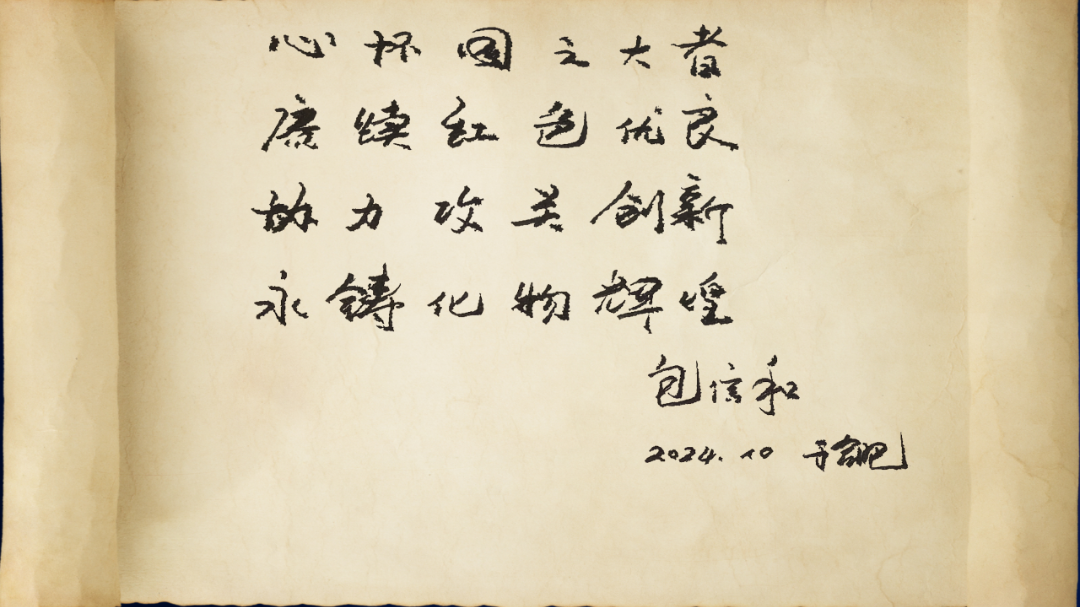 心怀国之大者
赓续红色优良
协力攻关创新
永铸化物辉煌
包信和
2024.10 于合肥